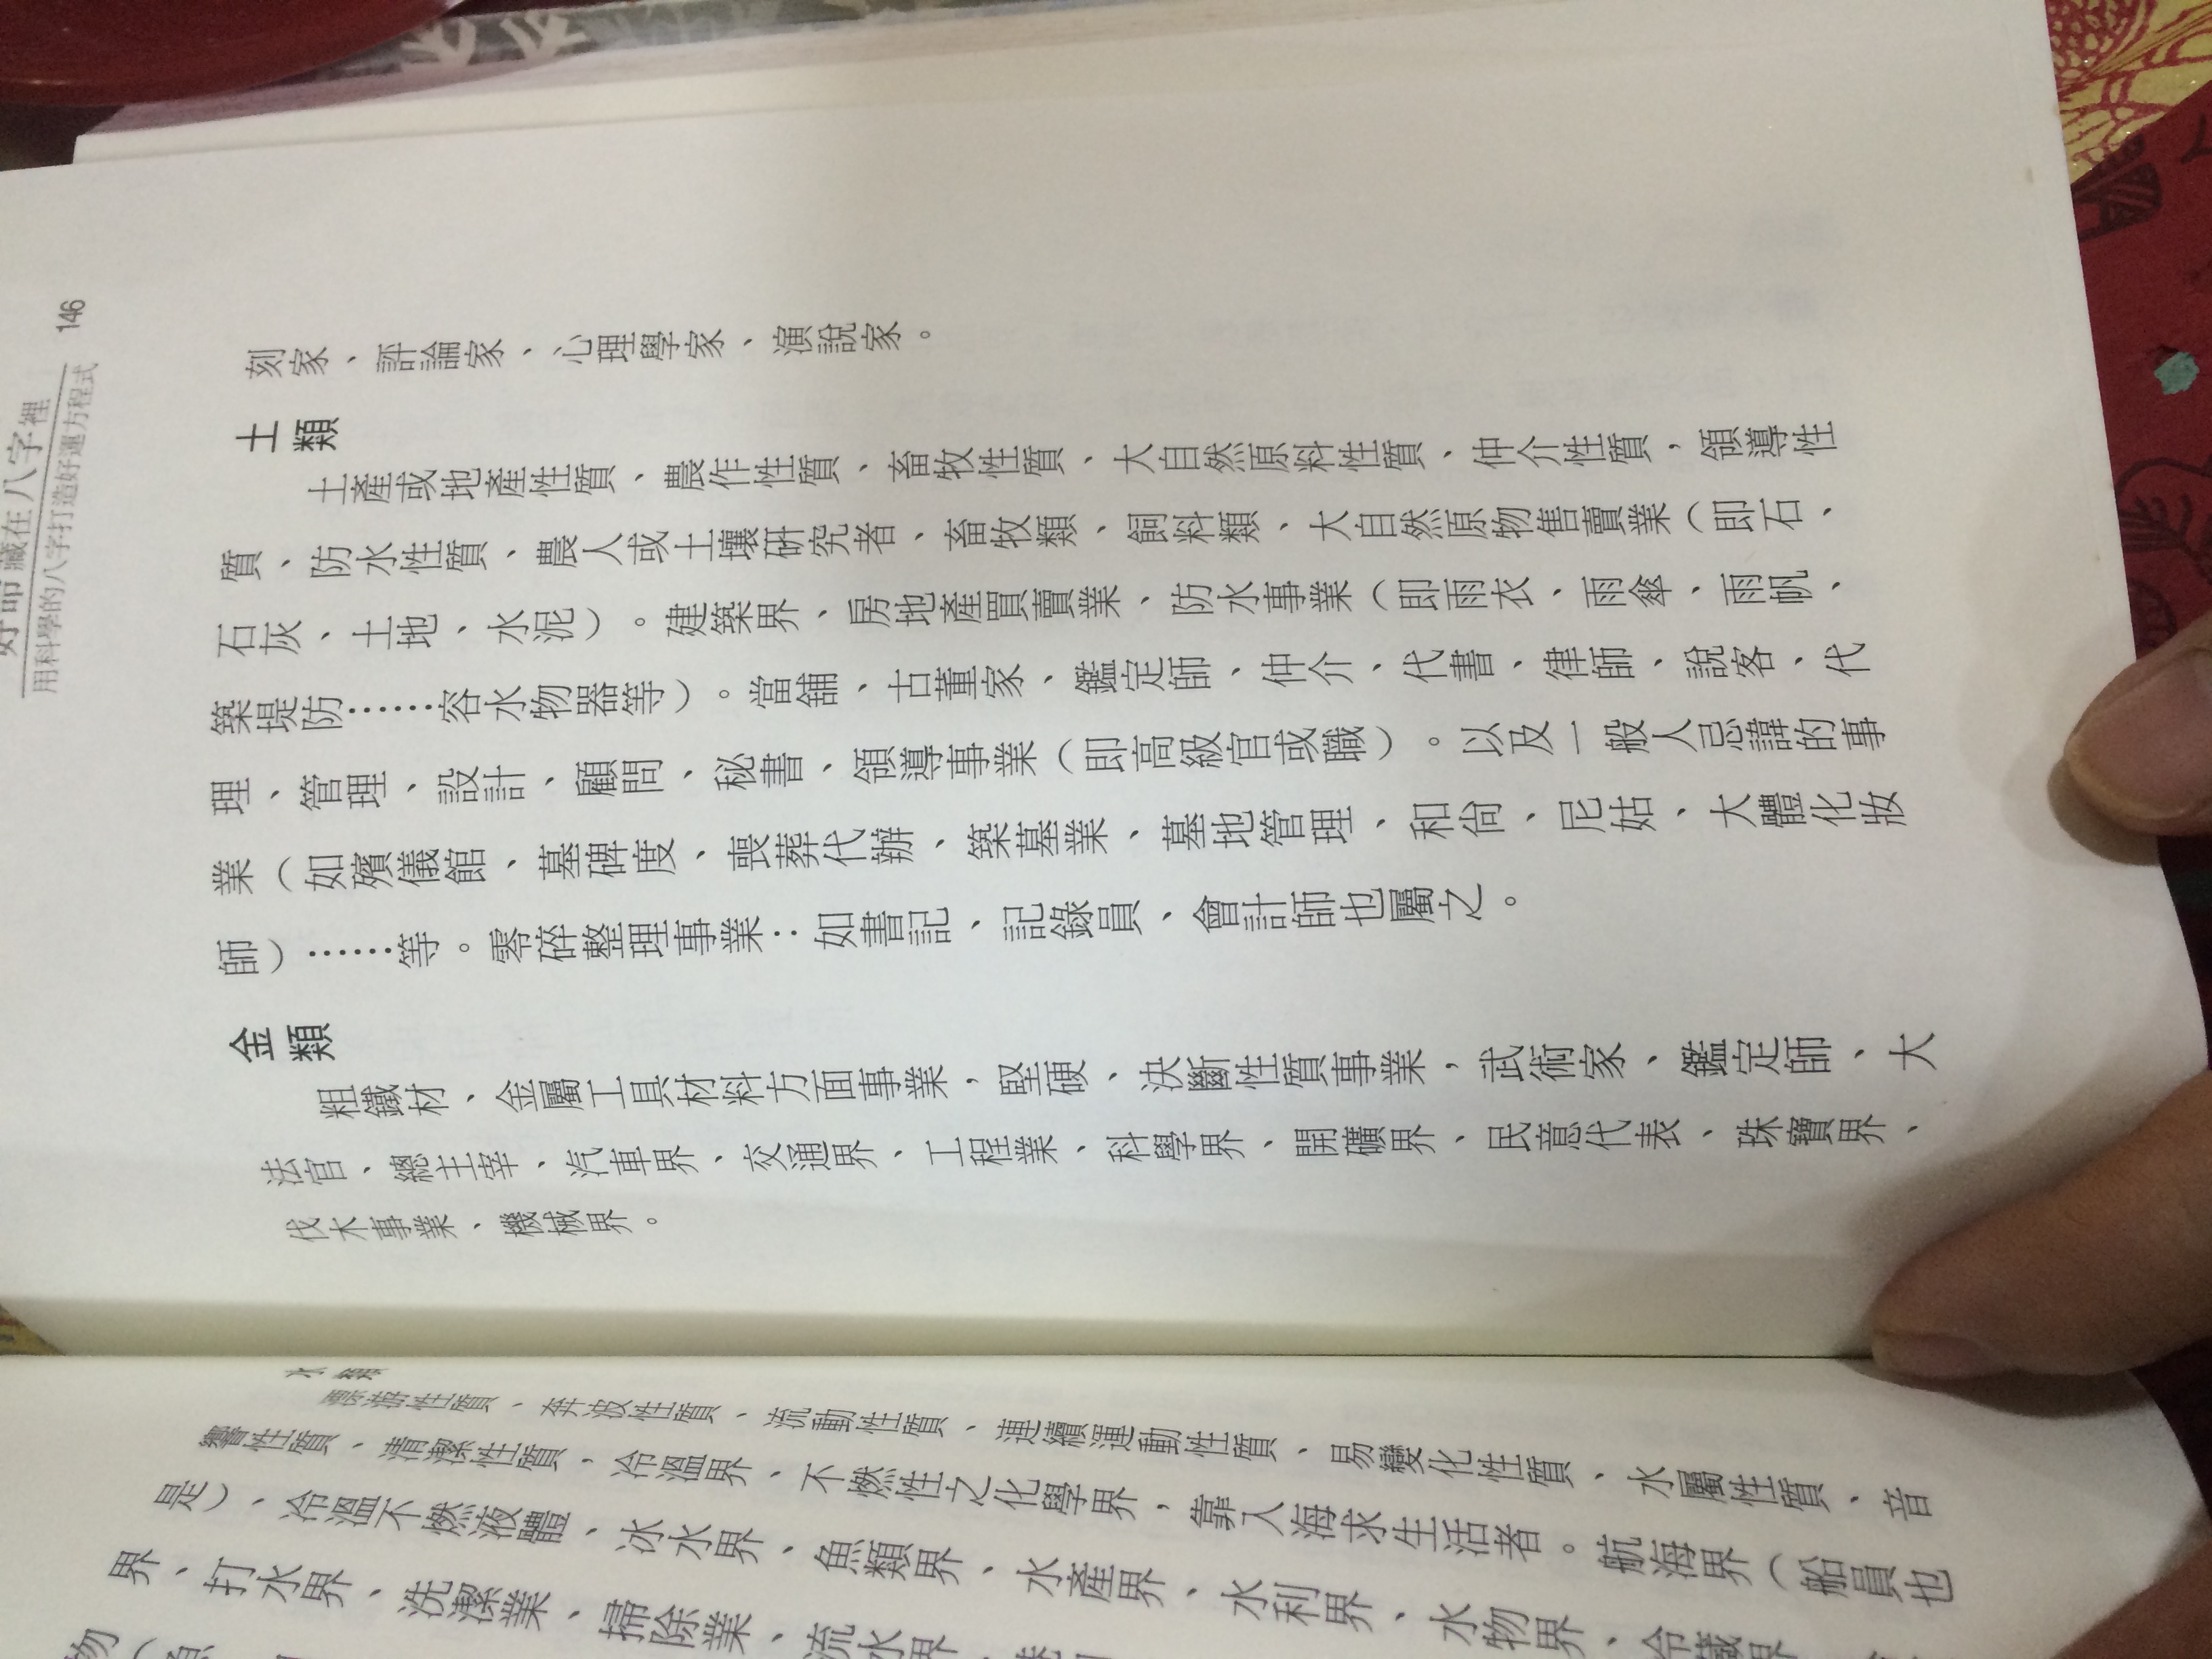 好命藏在八字裡
用科學的八字打造好運方程式
146
刻家、評論家、心理學家、演說家。
土類
土產或地產性質、農作性質、畜牧性質、大自然原料性質、仲介性質，領導性
質、防水性質、農人或土壤研究者、畜牧類、飼料類、大自然原物售賣業（即石、
石灰、土地、水泥）。建築界、房地產買賣業、防水事業（即雨衣、雨傘、雨帆、
築堤防……容水物器等）。當舖、古董家、鑑定師、仲介、代書、律師、說客、代
理、管理、設計、顧問、秘書、領導事業（即高級官或職）。以及一般人忌諱的事
業（如殯儀館、墓碑度、喪葬代辦、築墓業、墓地管理、和尚、尼姑、大體化妝
師）……等。零碎整理事業：如書記、記錄員、會計師也屬之。
金類
粗鐵材、金屬工具材料方面事業，堅硬、決斷性質事業，武術家、鑑定師、大
法官、總主宰、汽車界、交通界、工程業、科學界、開礦界、民意代表、珠寶界、
伐木事業、機械界。
水類
漂游性質、奔波性質、流動性質、連續運動性質、易變化性質、水屬性質、音
響性質、清潔性質、冷溫界、不燃性之化學界，靠入海求生活者。航海界（船員也
是）、冷溫不燃液體、冰水界、魚類界、水產界、水利界、水物界、冷藏界
界、打水界、洗潔業、掃除業、流水界、
物（